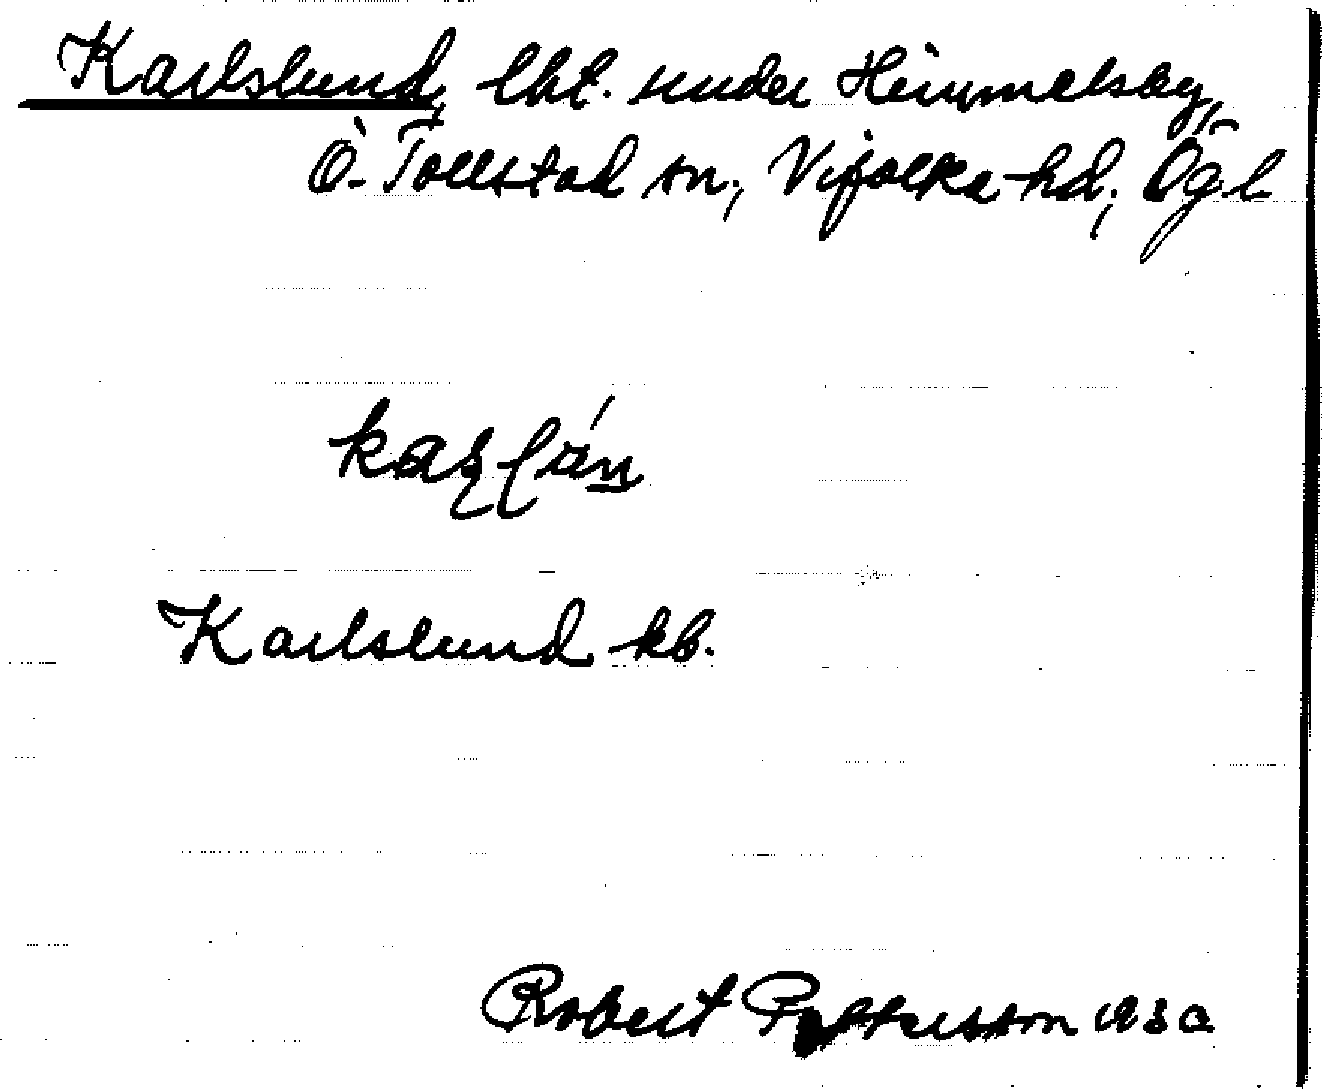 Karlslund, lht. under Himmelsby,
Ö. Tollstad sn, Vifolka hd, Ögl
Karlslund kb.
Robert Pettersson 1930